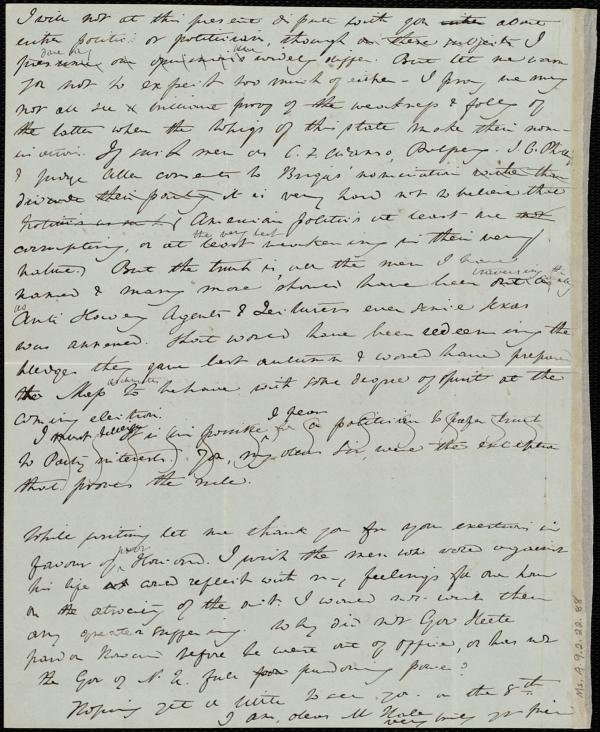 I will not at this present dispute with you about
either politics or politicians, though on these subjects I
dare say our opinions widely differ. But let me warn
you not to expect too much of either - I pray we may
not all see brilliant proof of the weakness & folly of
the latter when the Whigs of this state make their nom-
inations. If such men as C. F. Adams, Palfrey, 
& Judge Allen consent to Briggs' nomination rather than
divide their party it is very hard not to believe that
(American politics at least are
corrupting, or at least the very least weakening in their very
nature.) But the truth is, all the men I have
named & many more should have been traversing the
as Anti Slavery Agents & Lecturers ever since Texas
was annexed. That would have been redeeming the
pledges they gave last autumn & would have prepared
the Mass to behave with some degree of spirit at the
coming election.
It is impossible I fear for a politician to prefer truth
to Party interests. You, my dear Sir, were the exception
that proves the rule.
While writing let me thank you for your exertions in
favour of poor . I wish the men who voted against
his life could reflect with my feelings for one hour
on the atrocity of the act. I would not wish them
any greater suffering. Why did not Gov Steele
pardon before he went out of office, or has not
the Gov of N. H. full pardoning power?
Hoping yet a little to see you on the 8th
I am, dear Mr Hale
very truly yr friend
Ms. A. 9.2.22.88